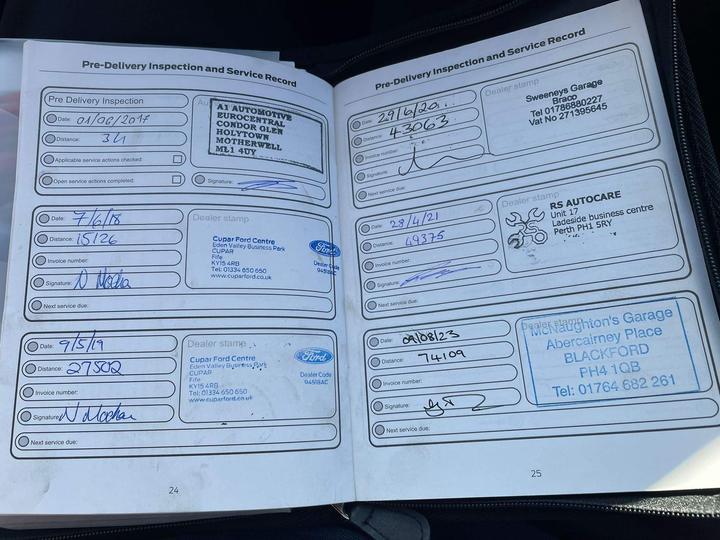 Pre-Delivery Inspection and Service Record
Pre Delivery Inspection
Date: 01/06/2017
Distance: 34
Applicable service actions checked:
Open service actions completed:
A1 AUTOMOTIVE
EUROCENTRAL
CONDOR GLEN
HOLYTOWN
MOTHERWELL
ML1 4UY
Signature:
Date: 7/6/18
Distance: 15126
Invoice number:
Signature:
Next service due:
Dealer stamp
Cupar Ford Centre
Eden Valley Business Park
CUPAR
Fife
KY15 4RB
Tel: 01334 650 650
www.cuparford.co.uk
Ford
Dealer Code
94518AC
Date: 9/5/19
Distance: 27502
Invoice number:
Signature:
Next service due:
Dealer stamp
Cupar Ford Centre
Eden Valley Business Park
CUPAR
Fife
KY15 4RB
Tel: 01334 650 650
www.cuparford.co.uk
Ford
Dealer Code
94518AC
24
Pre-Delivery Inspection and Service Record
Date: 29/6/20
Distance: 43063
Invoice number:
Signature:
Next service due:
Dealer stamp
Sweeneys Garage
Braco
Tel 01786880227
Vat No 271395645
Date: 28/4/21
Distance: 49375
Invoice number:
Signature:
Next service due:
Dealer stamp
RS AUTOCARE
Unit 17
Ladeside business centre
Perth PH1 5RY
Date: 09/08/23
Distance: 74109
Invoice number:
Signature:
Next service due:
Dealer stamp
McNaughton's Garage
Abercairney Place
BLACKFORD
PH4 1QB
Tel: 01764 682 261
25